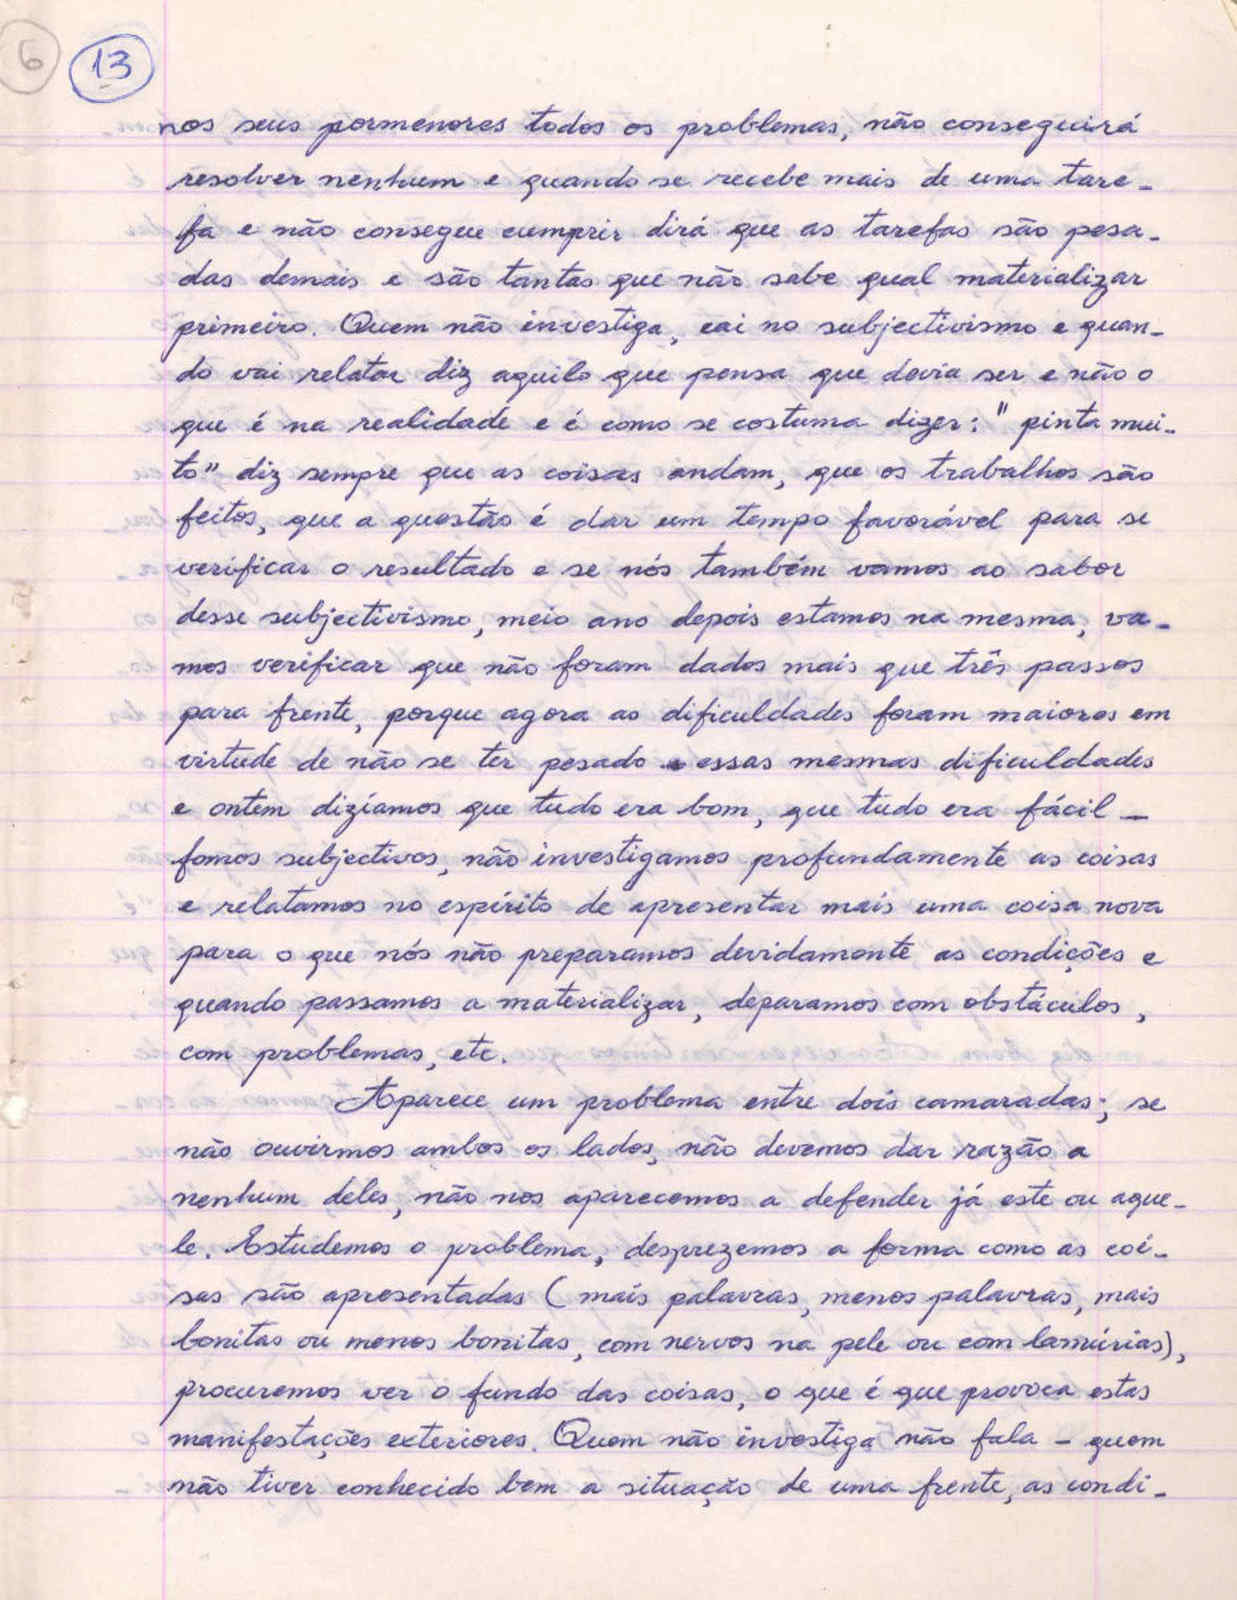 6
13
nos seus pormenores todos os problemas, não conseguirá
resolver nenhum e quando se recebe mais de uma tare-
fa e não consegue cumprir dirá que as tarefas são pesa-
das demais e são tantas que não sabe qual materializar
primeiro. Quem não investiga, cai no subjectivismo e quan-
do vai relatar diz aquilo que pensa que devia ser e não o
que é na realidade e é como se costuma dizer: "pinta mui-
to" diz sempre que as coisas andam, que os trabalhos são
feitos, que a questão é dar um tempo favorável para se
verificar o resultado e se nós também vamos ao sabor
desse subjectivismo, meio ano depois estamos na mesma, va-
mos verificar que não foram dados mais que três passos
para frente, porque agora as dificuldades foram maiores em
virtude de não se ter pesado essas mesmas dificuldades
e ontem dizíamos que tudo era bom, que tudo era fácil -
fomos subjectivos, não investigamos profundamente as coisas
e relatamos no espírito de apresentar mais uma coisa nova
para o que nós não preparamos devidamente as condições e
quando passamos a materializar, deparamos com obstáculos,
com problemas, etc.
Aparece um problema entre dois camaradas; se
não ouvirmos ambos os lados, não devemos dar razão a
nenhum deles, não nos aparecemos a defender já este ou aque-
le. Estudemos o problema, desprezemos a forma como as coi-
sas são apresentadas (mais palavras, menos palavras, mais
bonitas ou menos bonitas, com nervos na pele ou com lamúrias),
procuremos ver o fundo das coisas, o que é que provoca estas
manifestações exteriores. Quem não investiga não fala - quem
não tiver conhecido bem a situação de uma frente, as condi-